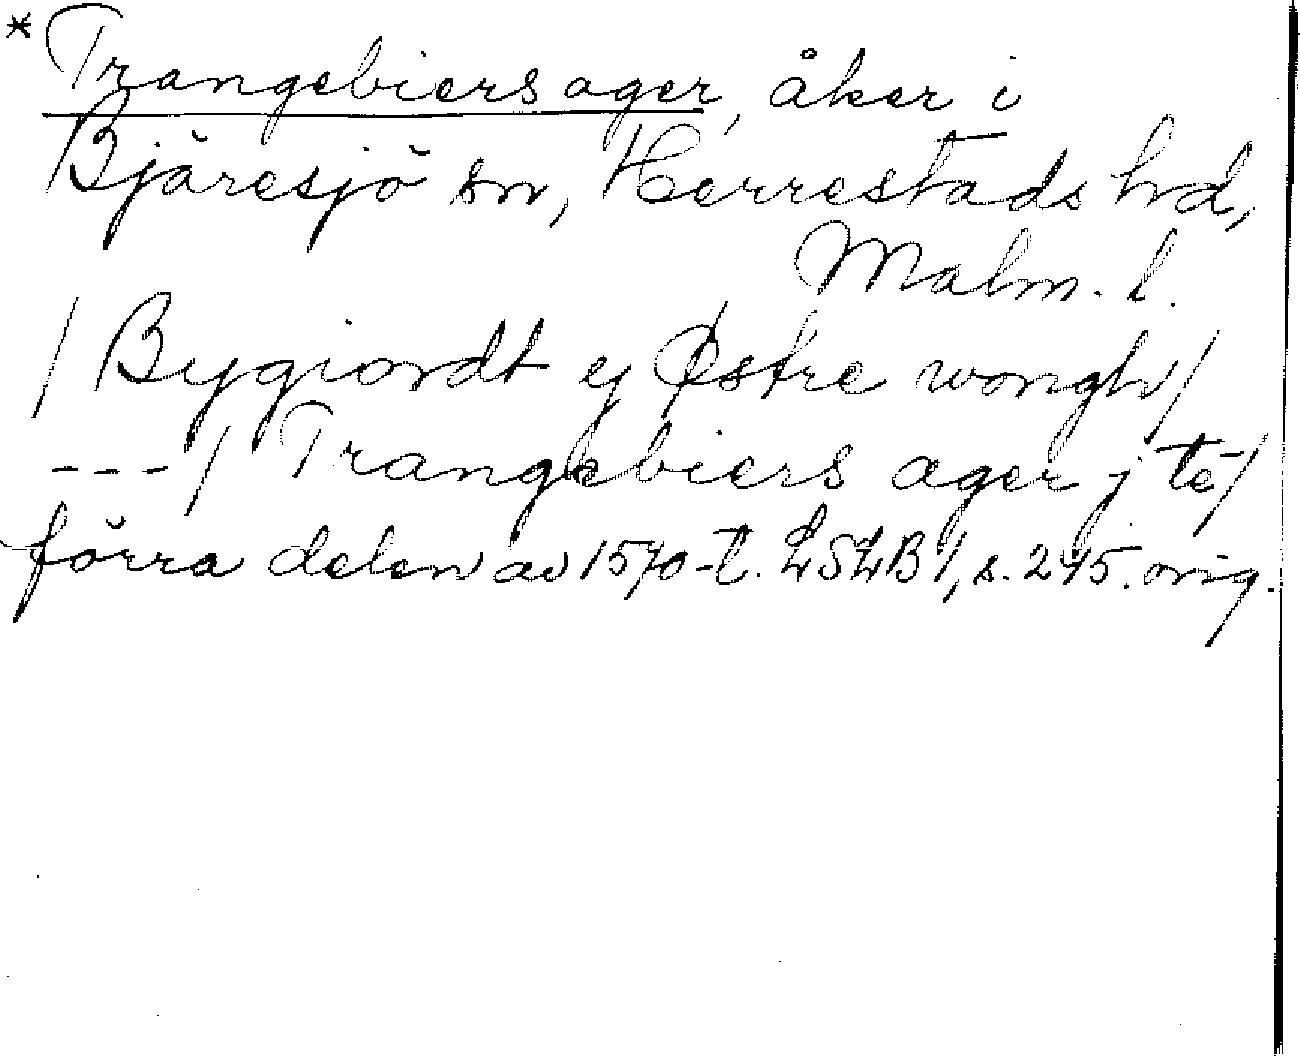 * Trangebiers ager, åker i
Bjäresjö sn, Herrestads hd,
Malm. l.
/ Bygiordt ej Østre wongh /
--- / Trangebiers ager j te /
förra delen av 1570-t. LSLB 1, s. 245. orig.